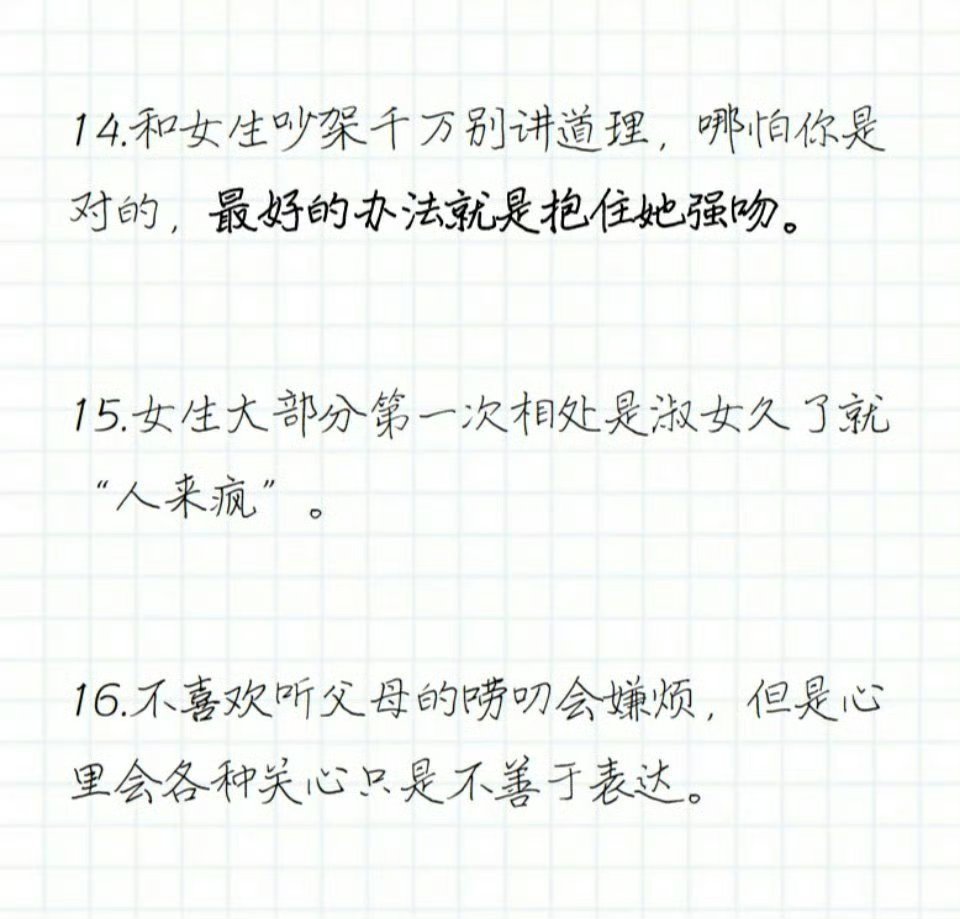 14.和女生吵架千万别讲道理，哪怕你是
对的，最好的办法就是抱住她强吻。
15.女生大部分第一次相处是淑女久了就
“人来疯”。
16.不喜欢听父母的唠叨会嫌烦，但是心
里会各种关心只是不善于表达。